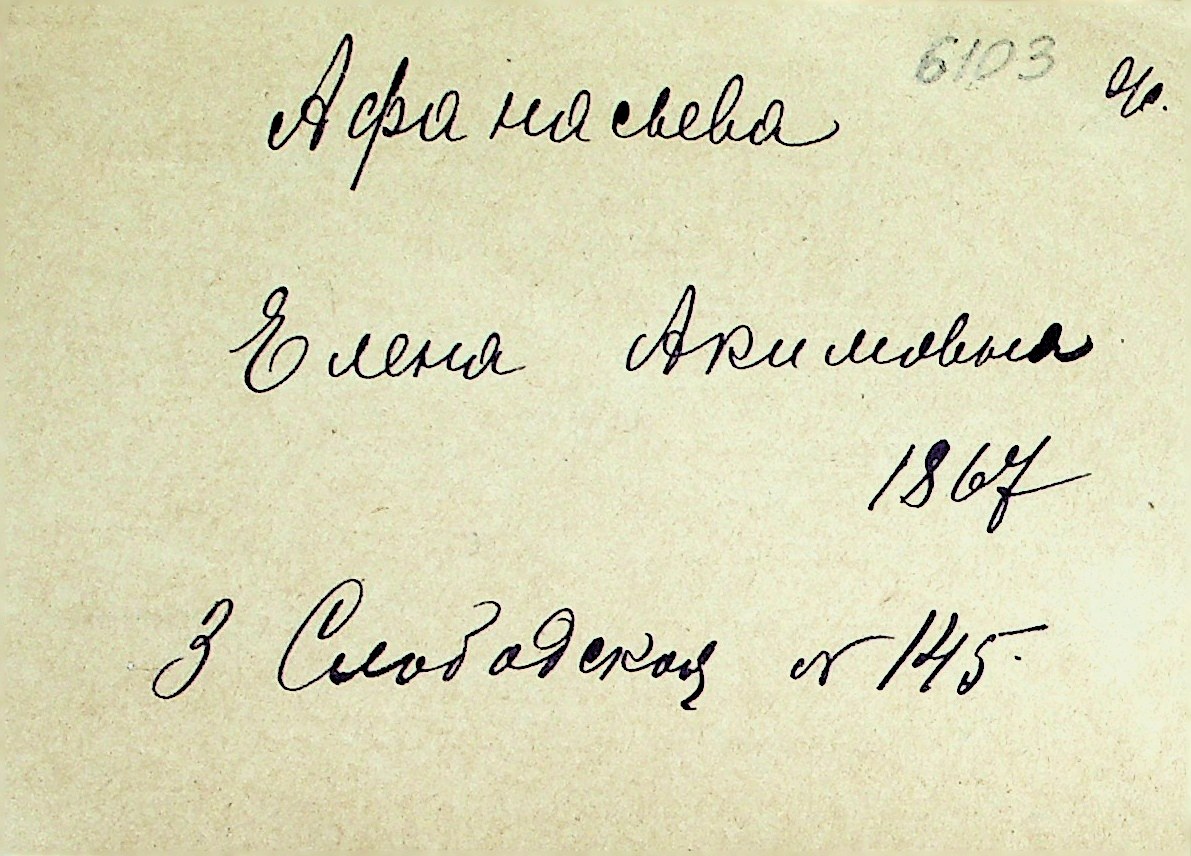 6103
Афанасьева
Елена Акимовна
1867
3 Слободская N 145.